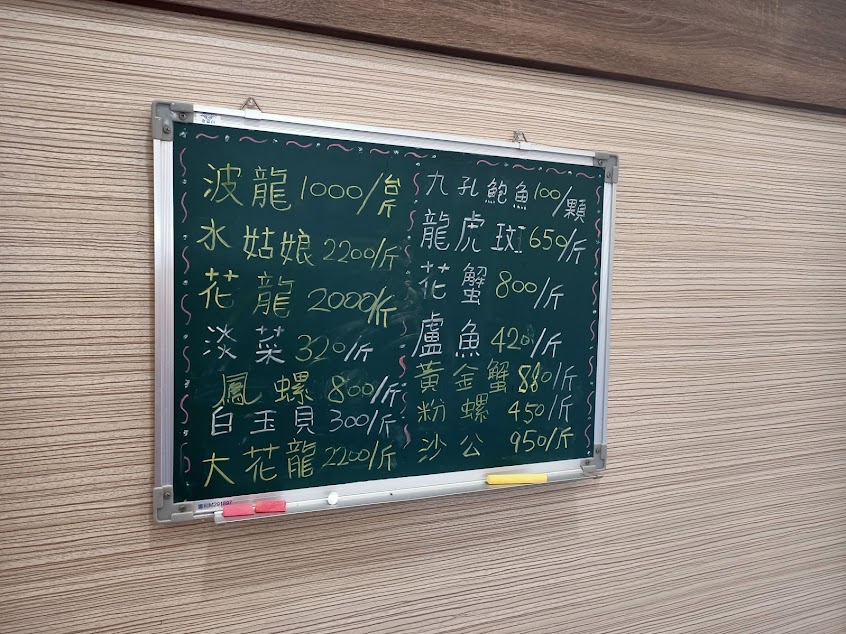 波龍1000/台斤
水姑娘2200/斤
花龍2000/斤
淡菜320/斤
鳳螺800/斤
白玉貝300/斤
大花龍2200/斤
九孔鮑魚100/顆
龍虎斑650/斤
花蟹800/斤
盧魚420/斤
黃金蟹880/斤
粉螺450/斤
沙公950/斤